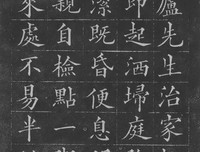 廬先生治家
即起洒埽庭
潔既昏便息
親自檢點一
來處不易半